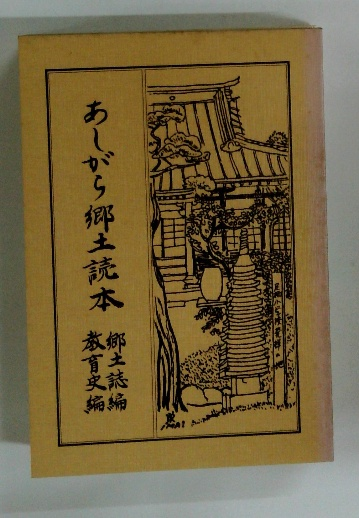 あしがら郷土読本
郷土誌編
教育史編